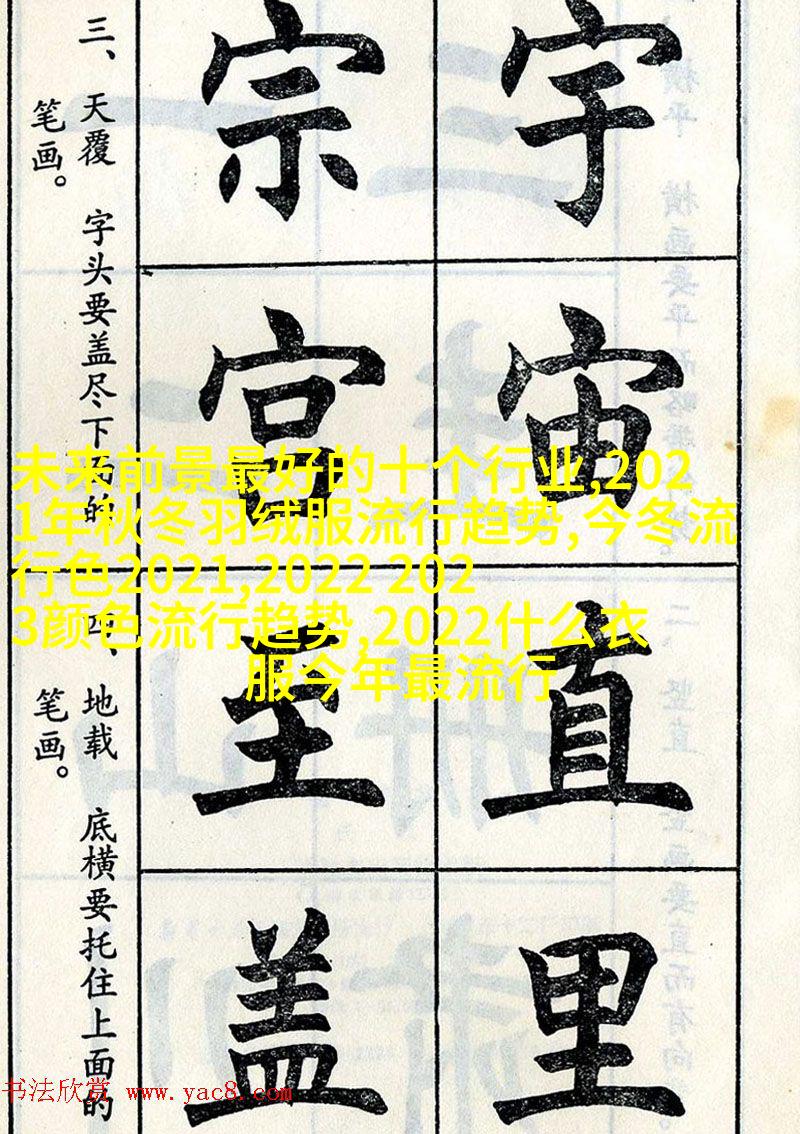 宇
宙
直
里
宗
宫
至
盖
三、天覆 字头要盖尽下面的
笔画。
四、地载 底横要托住上面的
笔画。
未来前景最好的十个行业,202
1年秋冬羽绒服流行趋势,今冬流
行色2021,2022 202
3颜色流行趋势,2022什么衣
服今年最流行
书法欣赏 www.yac8.com